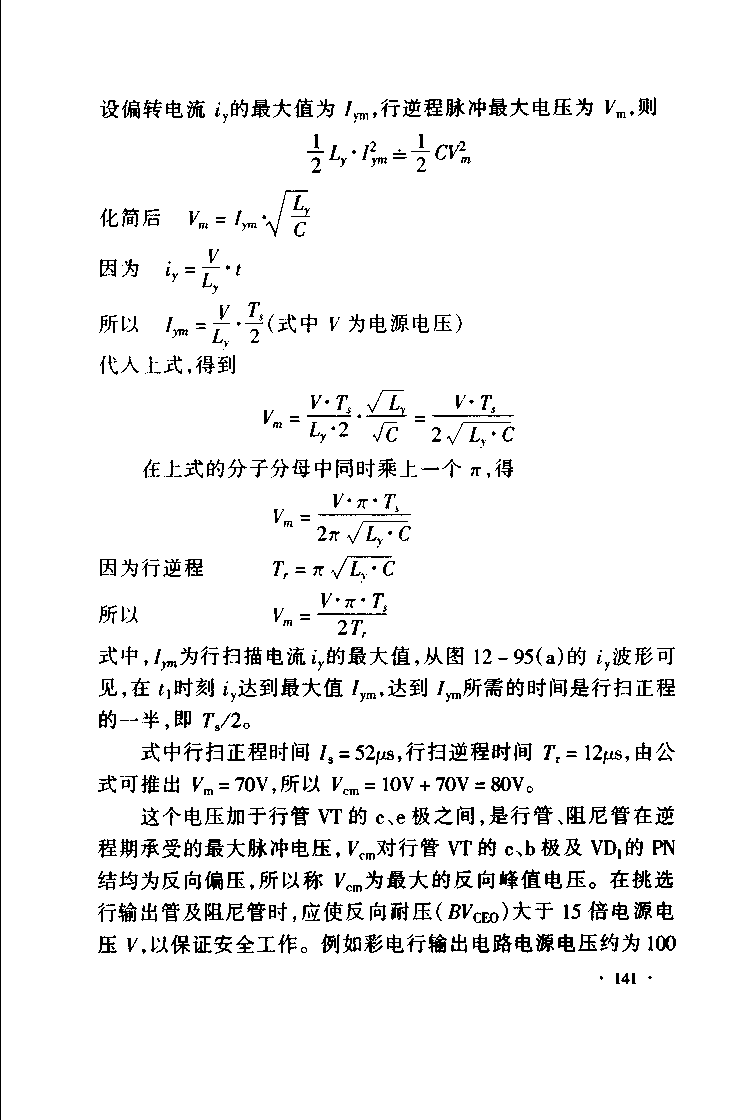 设偏转电流 iy的最大值为 Iym,行逆程脉冲最大电压为 Vm,则
1/2 Ly·I²ym ≐ 1/2 CV²m
化简后 Vm = Iym·√(Ly/C)
因为 iy = V/Ly·t
所以 Iym = V/Ly·Ts/2(式中 V 为电源电压)
代人上式,得到
Vm = V·Ts/Ly·2·√Ly/√C = V·Ts/2√Ly·C
在上式的分子分母中同时乘上一个 π,得
Vm = V·π·Ts/2π√Ly·C
因为行逆程 Tr = π√Ly·C
所以 Vm = V·π·Ts/2Tr
式中,Iym为行扫描电流iy的最大值,从图 12-95(a)的 iy波形可
见,在 t1时刻 iy达到最大值 Iym,达到 Iym所需的时间是行扫正程
的一半,即 Ts/2。
式中行扫正程时间 Is = 52μs,行扫逆程时间 Tr = 12μs,由公
式可推出 Vm = 70V,所以 Vcm = 10V + 70V = 80V。
这个电压加于行管 VT 的 c、e 极之间,是行管、阻尼管在逆
程期承受的最大脉冲电压,Vcm对行管 VT 的 c、b 极及 VD1的 PN
结均为反向偏压,所以称 Vcm为最大的反向峰值电压。在挑选
行输出管及阻尼管时,应使反向耐压(BVCEO)大于 15 倍电源电
压 V,以保证安全工作。例如彩电行输出电路电源电压约为 100
· 141 ·